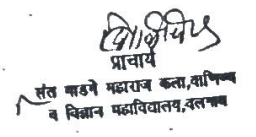 प्राचार्य
संत गाडगे महाराज कला, वाणिज्य
व विज्ञान महाविद्यालय, वलगाव